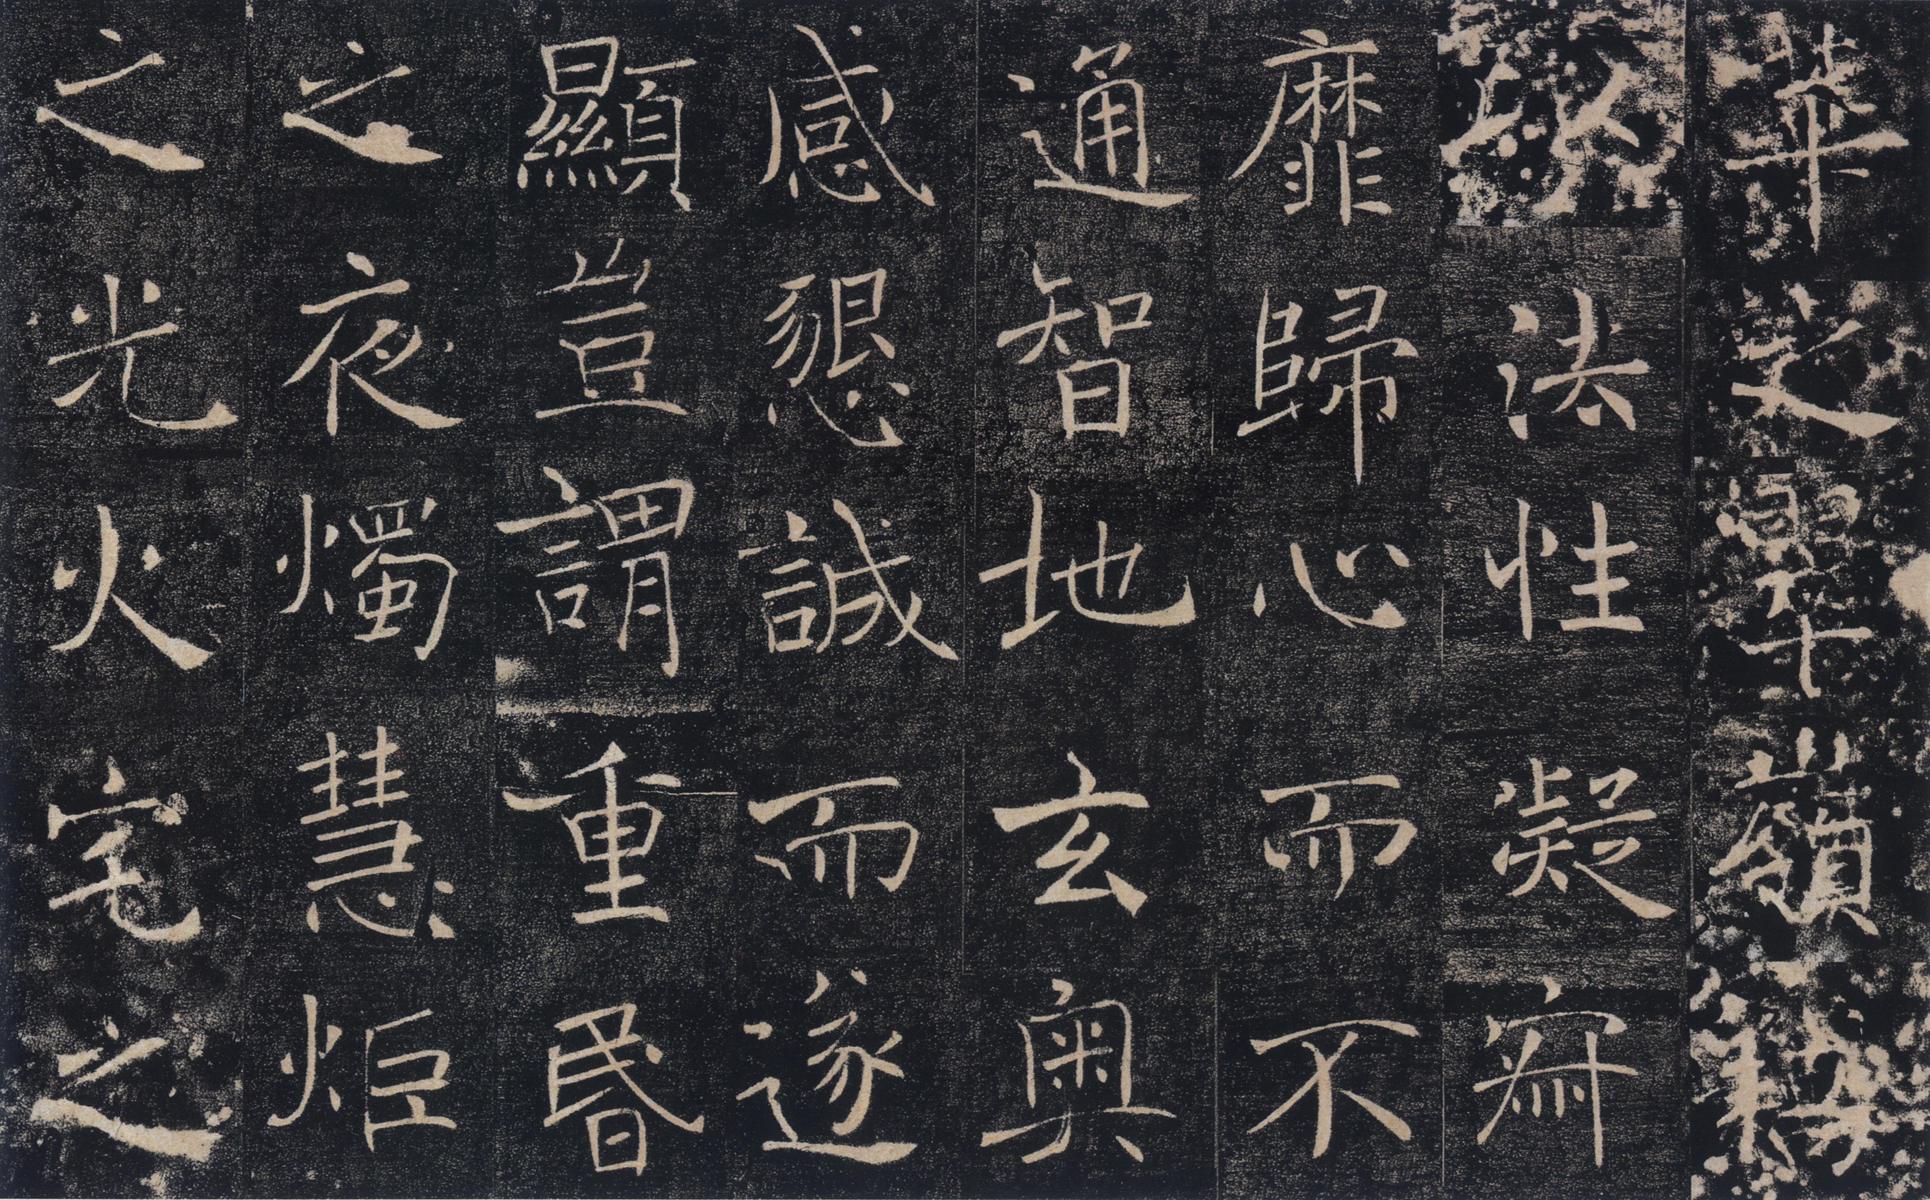 華之翠嶺竊
以法性凝寂
靡歸心而不
通智地玄奥
感懇誠而遂
顯豈謂重昬
之夜燭慧炬
之光火宅之